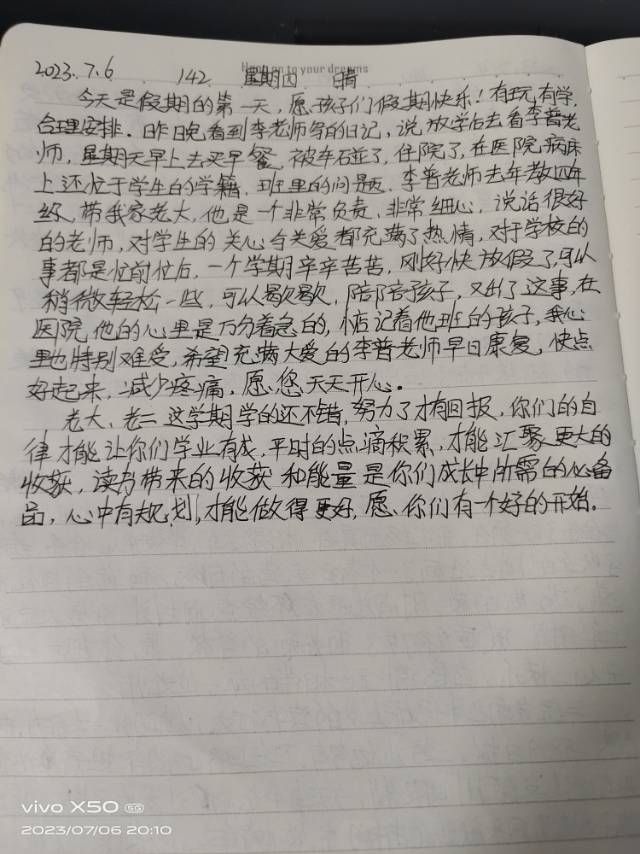 Hang on to your dreams
2023.7.6 142 星期四 晴
今天是假期的第一天，愿孩子们假期快乐！有玩有学，
合理安排。昨晚看到李老师写的日记，说放学后去看李普老
师，星期天早上去买早餐，被车碰了，住院了，在医院病床
上还忙于学生的学籍，班里的问题，李普老师去年教四年
级，带我家老大，他是一个非常负责，非常细心，说话很好
的老师，对学生的关心与关爱都充满了热情，对于学校的
事都是忙前忙后，一个学期辛辛苦苦，刚好快放假了，可以
稍微轻松一些，可以歇歇，陪陪孩子，又出了这事，在
医院他的心里是万分着急的，惦记着他班的孩子，我心
里也特别难受，希望充满大爱的李普老师早日康复，快点
好起来，减少疼痛，愿您天天开心。
老大、老二这学期学的还不错，努力了才有回报，你们的自
律才能让你们学业有成，平时的点滴积累，才能汇聚更大的
收获，读书带来的收获和能量是你们成长中所需的必备
品，心中有规划，才能做得更好，愿你们有一个好的开始。
vivo X50 5G
2023/07/06 20:10